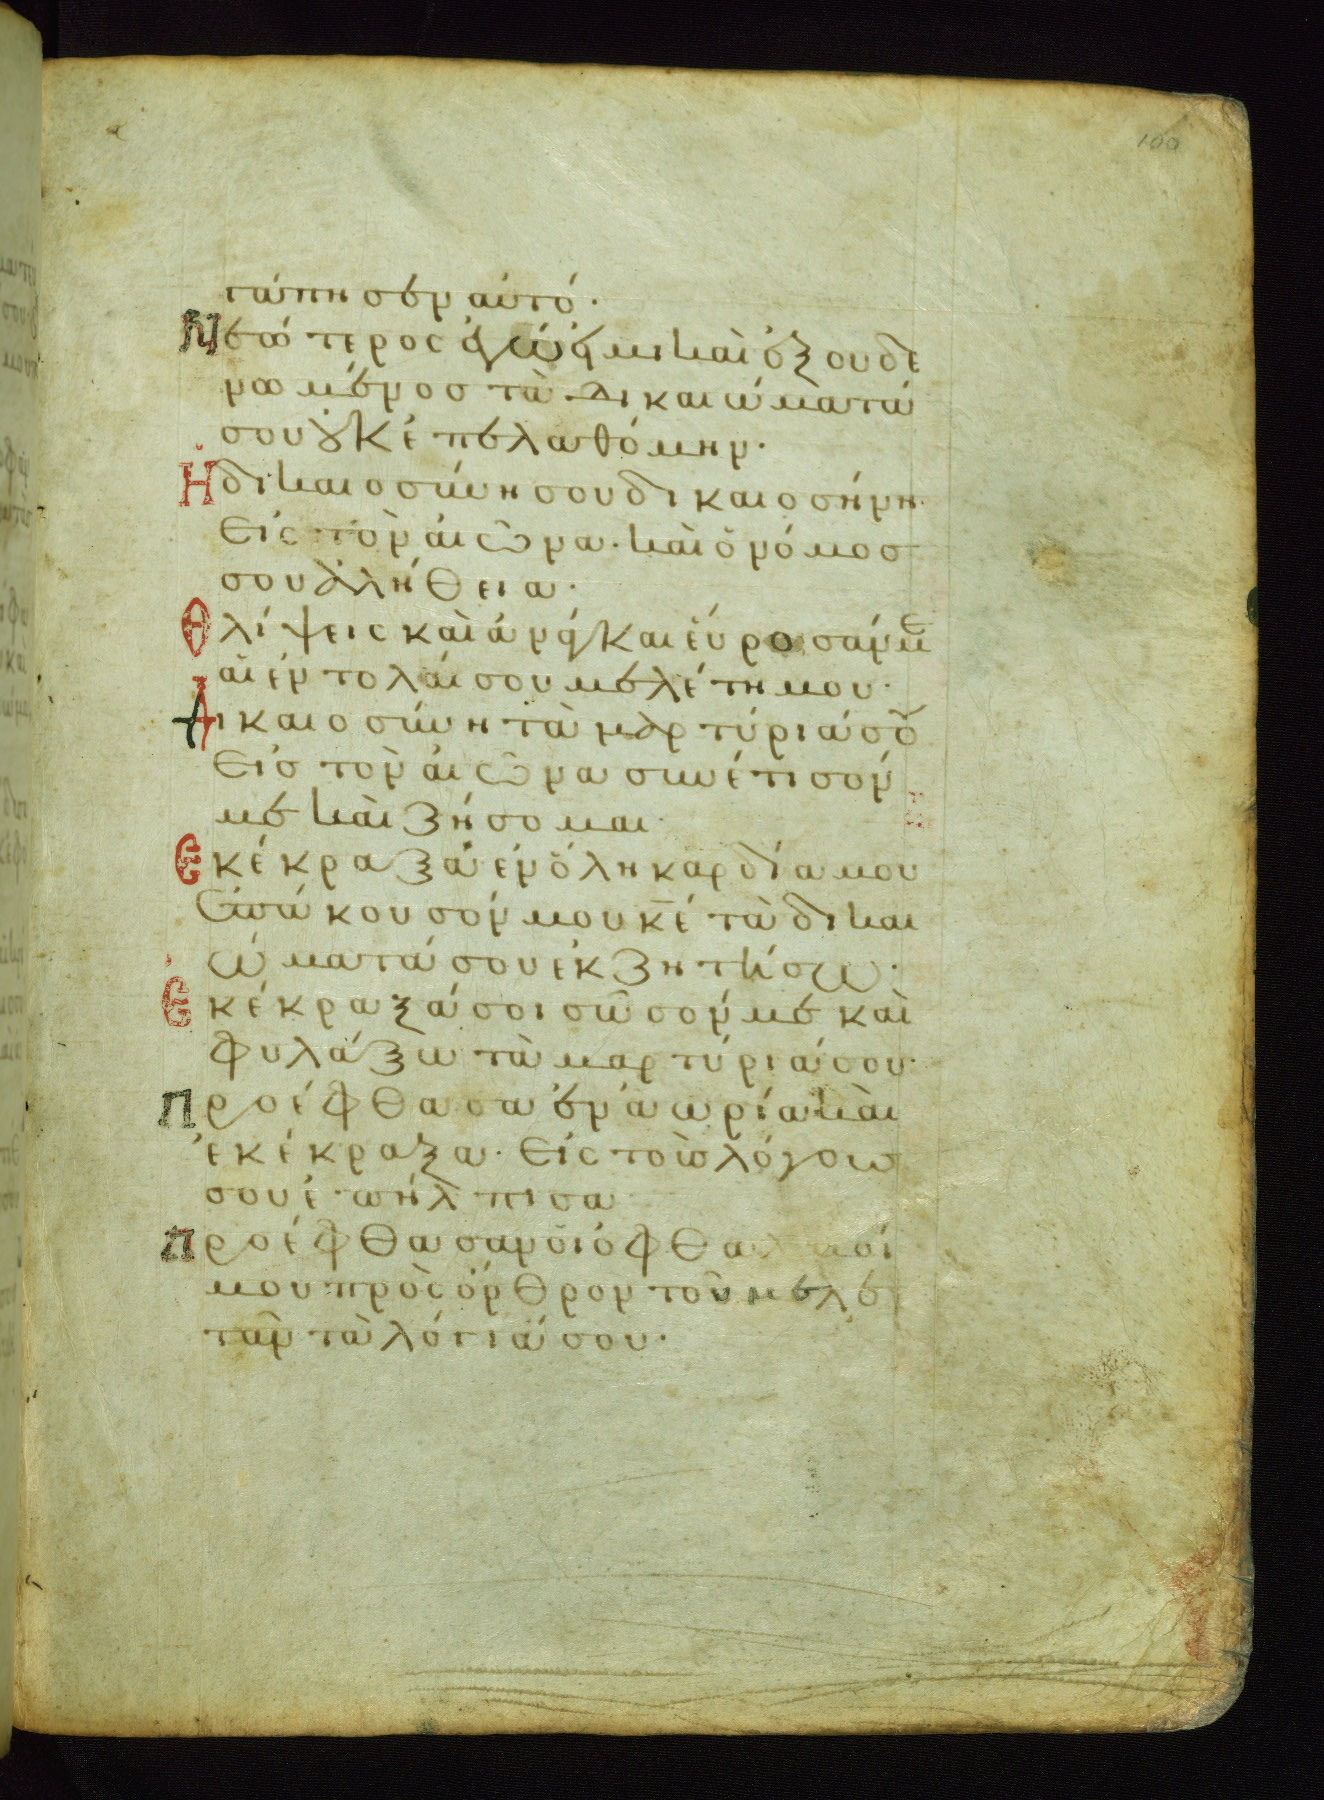 100
τάπησεν αὐτό·
Νεώτερος ἐγώ εἰμι καὶ ἐξουδε
νωμένος τὰ δικαιώματά
σου οὐκ ἐπελαθόμην·
Ἡ δικαιοσύνη σου δικαιοσύνη
εἰς τὸν αἰῶνα· καὶ ὁ νόμος
σου ἀλήθεια·
Θλίψεις καὶ ἀνάγκαι εὕροσάν με
αἱ ἐντολαί σου μελέτη μου·
Δικαιοσύνη τὰ μαρτύριά σου
εἰς τὸν αἰῶνα συνέτισόν
με καὶ ζήσομαι·
Ἐκέκραξα ἐν ὅλη καρδία μου
ἐπάκουσόν μου κ̅ε̅ τὰ δικαι
ώματά σου ἐκζητήσω·
Ἐκέκραξά σοι σῶσόν με καὶ
φυλάξω τὰ μαρτύριά σου·
Προέφθασα ἐν ἀωρία καὶ
ἐκέκραξα· εἰς τοὺς λόγους
σου ἐπήλπισα
Προέφθασαν οἱ ὀφθαλμοί
μου πρὸς ὄρθρον τοῦ μελε
τᾶν τὰ λόγιά σου·